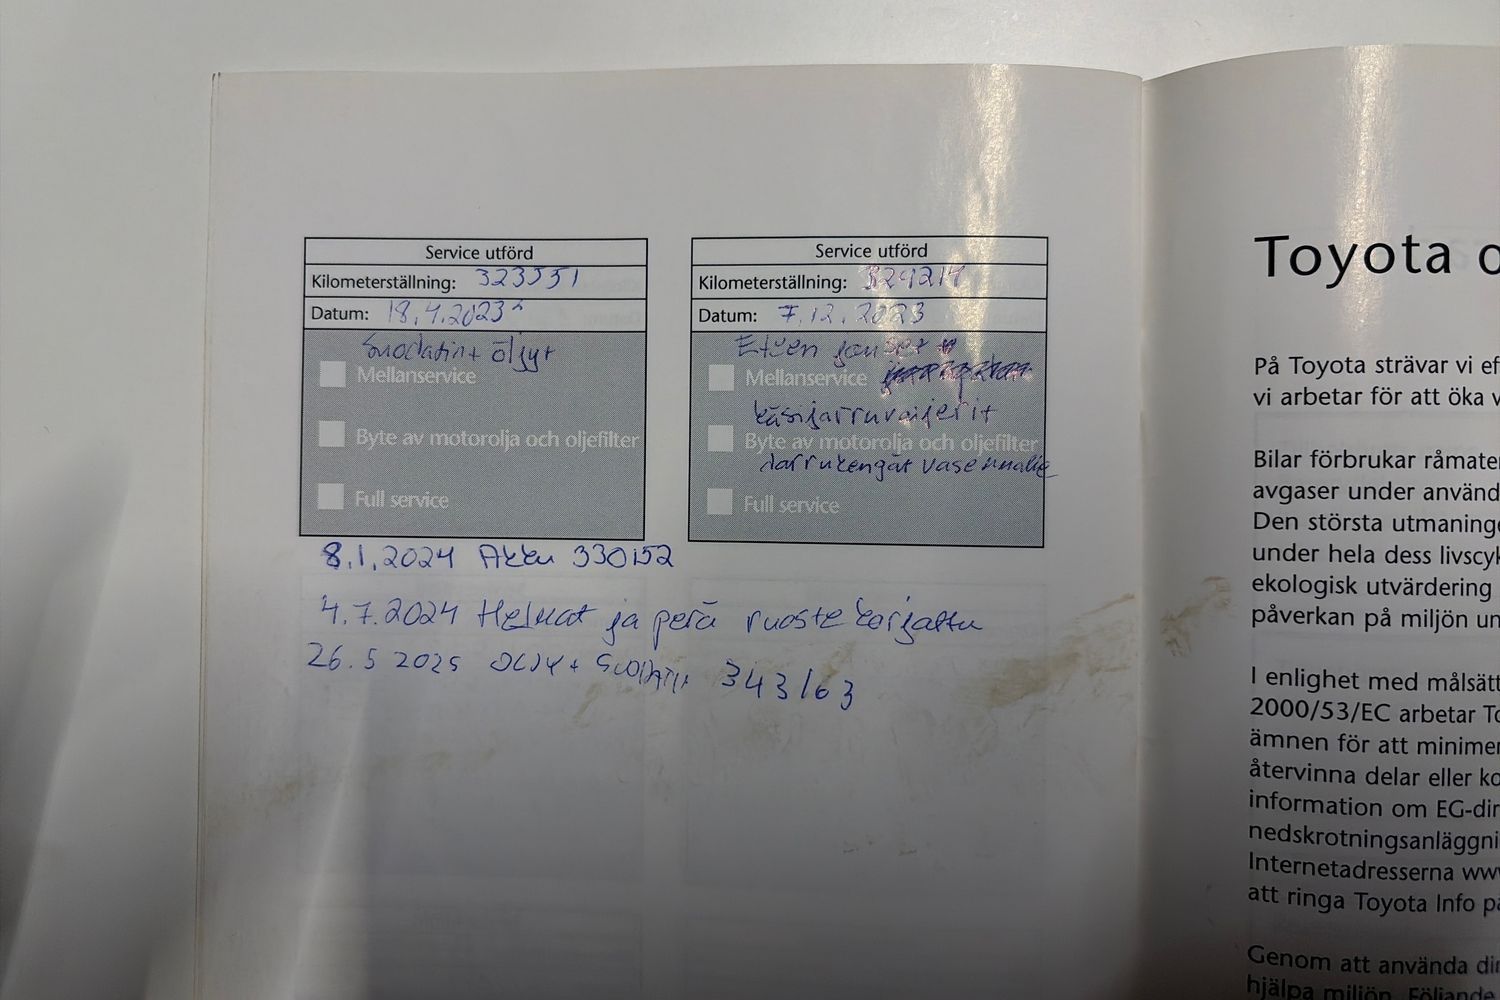 Service utförd
Kilometerställning: 323551
Datum: 18.4.2023
Suodatin + öljyt
Mellanservice
Byte av motorolja och oljefilter
Full service
Service utförd
Kilometerställning: 329214
Datum: 7.12.2023
Eteen
Mellanservice
käsijarruvaijerit
Byte av motorolja och oljefilter
Jarrukengät vasemmalle
Full service
8.1.2024 Akku 330152
4.7.2024 Helmat ja perä ruostekorjattu
26.5 2025 ÖLJY + SUODATIN 343163
Toyota o
På Toyota strävar vi ef
vi arbetar för att öka v
Bilar förbrukar råmater
avgaser under använd
Den största utmaninge
under hela dess livscyk
ekologisk utvärdering
påverkan på miljön un
I enlighet med målsätt
2000/53/EC arbetar To
ämnen för att minimer
återvinna delar eller ko
information om EG-dir
nedskrotningsanläggni
Internetadresserna www
att ringa Toyota Info på
Genom att använda din
hjälpa miljön. Följande